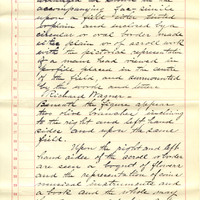 accompanying fac-simile
upon a field either lined
or plain and inclosed by a
circular or oval border made
either plain or of scroll work
with the pictorial representation
of a mans head viewed in
profile placed in the center
of the field and surmounted
by the words and letters
"Richard Wagner"
Beneath the figure appear
two olive branches inclining
to the right and left hand
sides and upon the same
field.
Upon the right and left
hand sides of the scroll border
are seen a boquet of flowers
and the representation of six
musical instruments and
a book and the whole